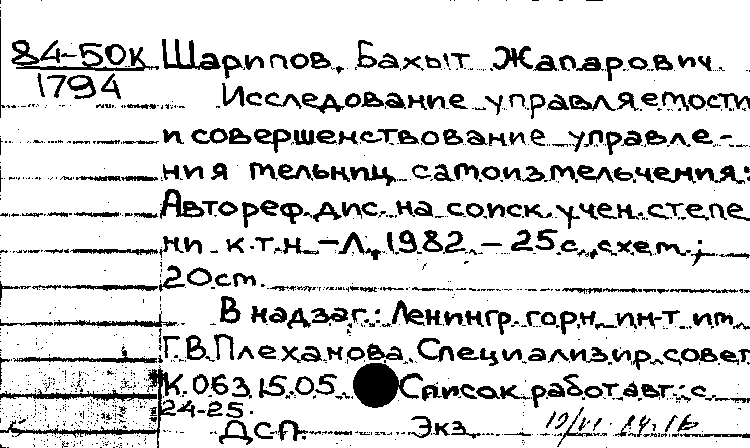 84-50к Шарипов, Бахыт Жапарович
1794
Исследование управляемости
и совершенствование управле-
ния мельниц самоизмельчения:
Автореф. дис. на соиск. учен. степе
ни к.т.н. – Л., 1982. – 25 с., схем.;
20 см.
В надзаг.: Ленингр. горн. ин-т им.
Г.В. Плеханова. Специализир. совет
К.063.15.05. Список работ авт.: с.
24-25.
ДСП. Экз.